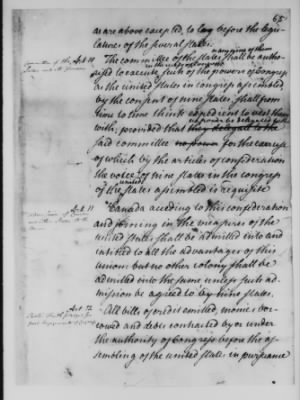 65
as are above excepted, to lay before the legis-
latures of the several states.
Art 10
The committee of the states shall be autho-
or any nine of them
in the recess of Congress
rized to execute such of the powers of Congress
as the united states in congress assembled
by the consent of nine states, shall from
time to time think expedient to vest them
with; provided that they delegate to the
no power be delegated to the
said committee no power for the exercise
of which by the articles of confederation
the voice of nine states in the congress
of the united states assembled is requisite
Art. 11
Canada acceding to this confederation
and joining in the measures of the
united states shall be admitted into and
entitled to all the advantages of this
union: but no other colony shall be
admitted into the same unless such ad-
mission be agreed to by nine states.
Art. 12
All bills of credit emitted, monies bor-
rowed and debts contracted by or under
the authority of Congress before the as-
sembling of the united states in pursuance